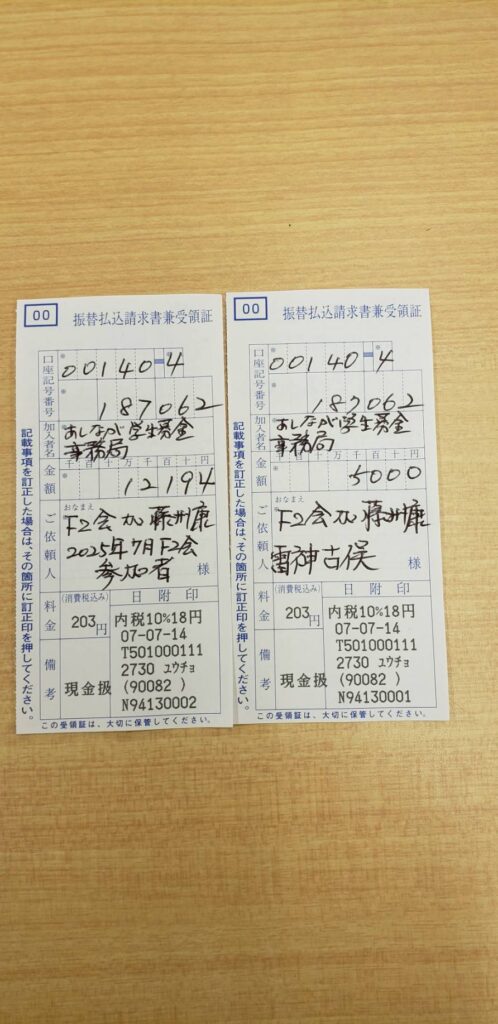 00
振替払込請求書兼受領証
口座記号番号
00140-4
187062
加入者名
あしなが学生募金
事務局
金額
千百十万千百十円
12194
ご依頼人
おなまえ
F2会
2025年7月F2会
参加者
様
料金
(消費税込み)
203円
日附印
内税10%18円
07-07-14
T501000111
2730 ユウチョ
(90082 )
N94130002
備考
現金扱
記載事項を訂正した場合は、その箇所に訂正印を押してください。
この受領証は、大切に保管してください。
00
振替払込請求書兼受領証
口座記号番号
00140-4
187062
加入者名
あしなが学生募金
事務局
金額
千百十万千百十円
5000
ご依頼人
おなまえ
F2会
雷神古俣
様
料金
(消費税込み)
203円
日附印
内税10%18円
07-07-14
T501000111
2730 ユウチョ
(90082 )
N94130001
備考
現金扱
記載事項を訂正した場合は、その箇所に訂正印を押してください。
この受領証は、大切に保管してください。